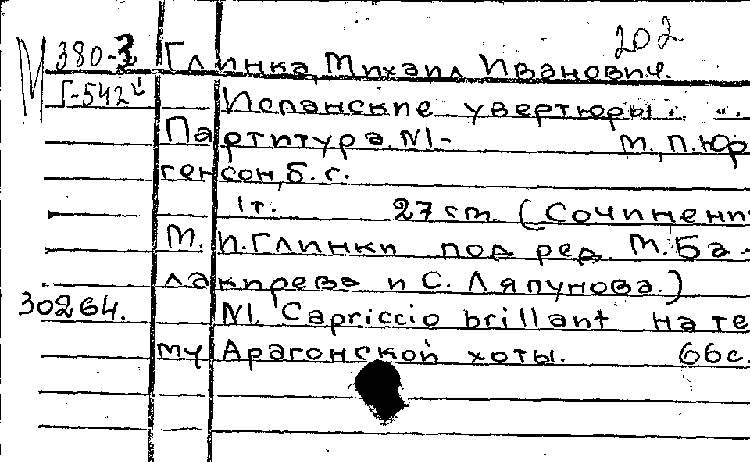 202
М 380-3 Глинка, Михаил Иванович.
Г-542и Испанские увертюры. ".
Партитура. N1- М., П. Юр
генсон, б. г.
1т. 27 cm. (Сочинени
М. И. Глинки под ред. М. Ба-
лакирева и С. Ляпунова.)
30264. N1. Capriccio brillant на те
му Арагонской хоты. 66с.